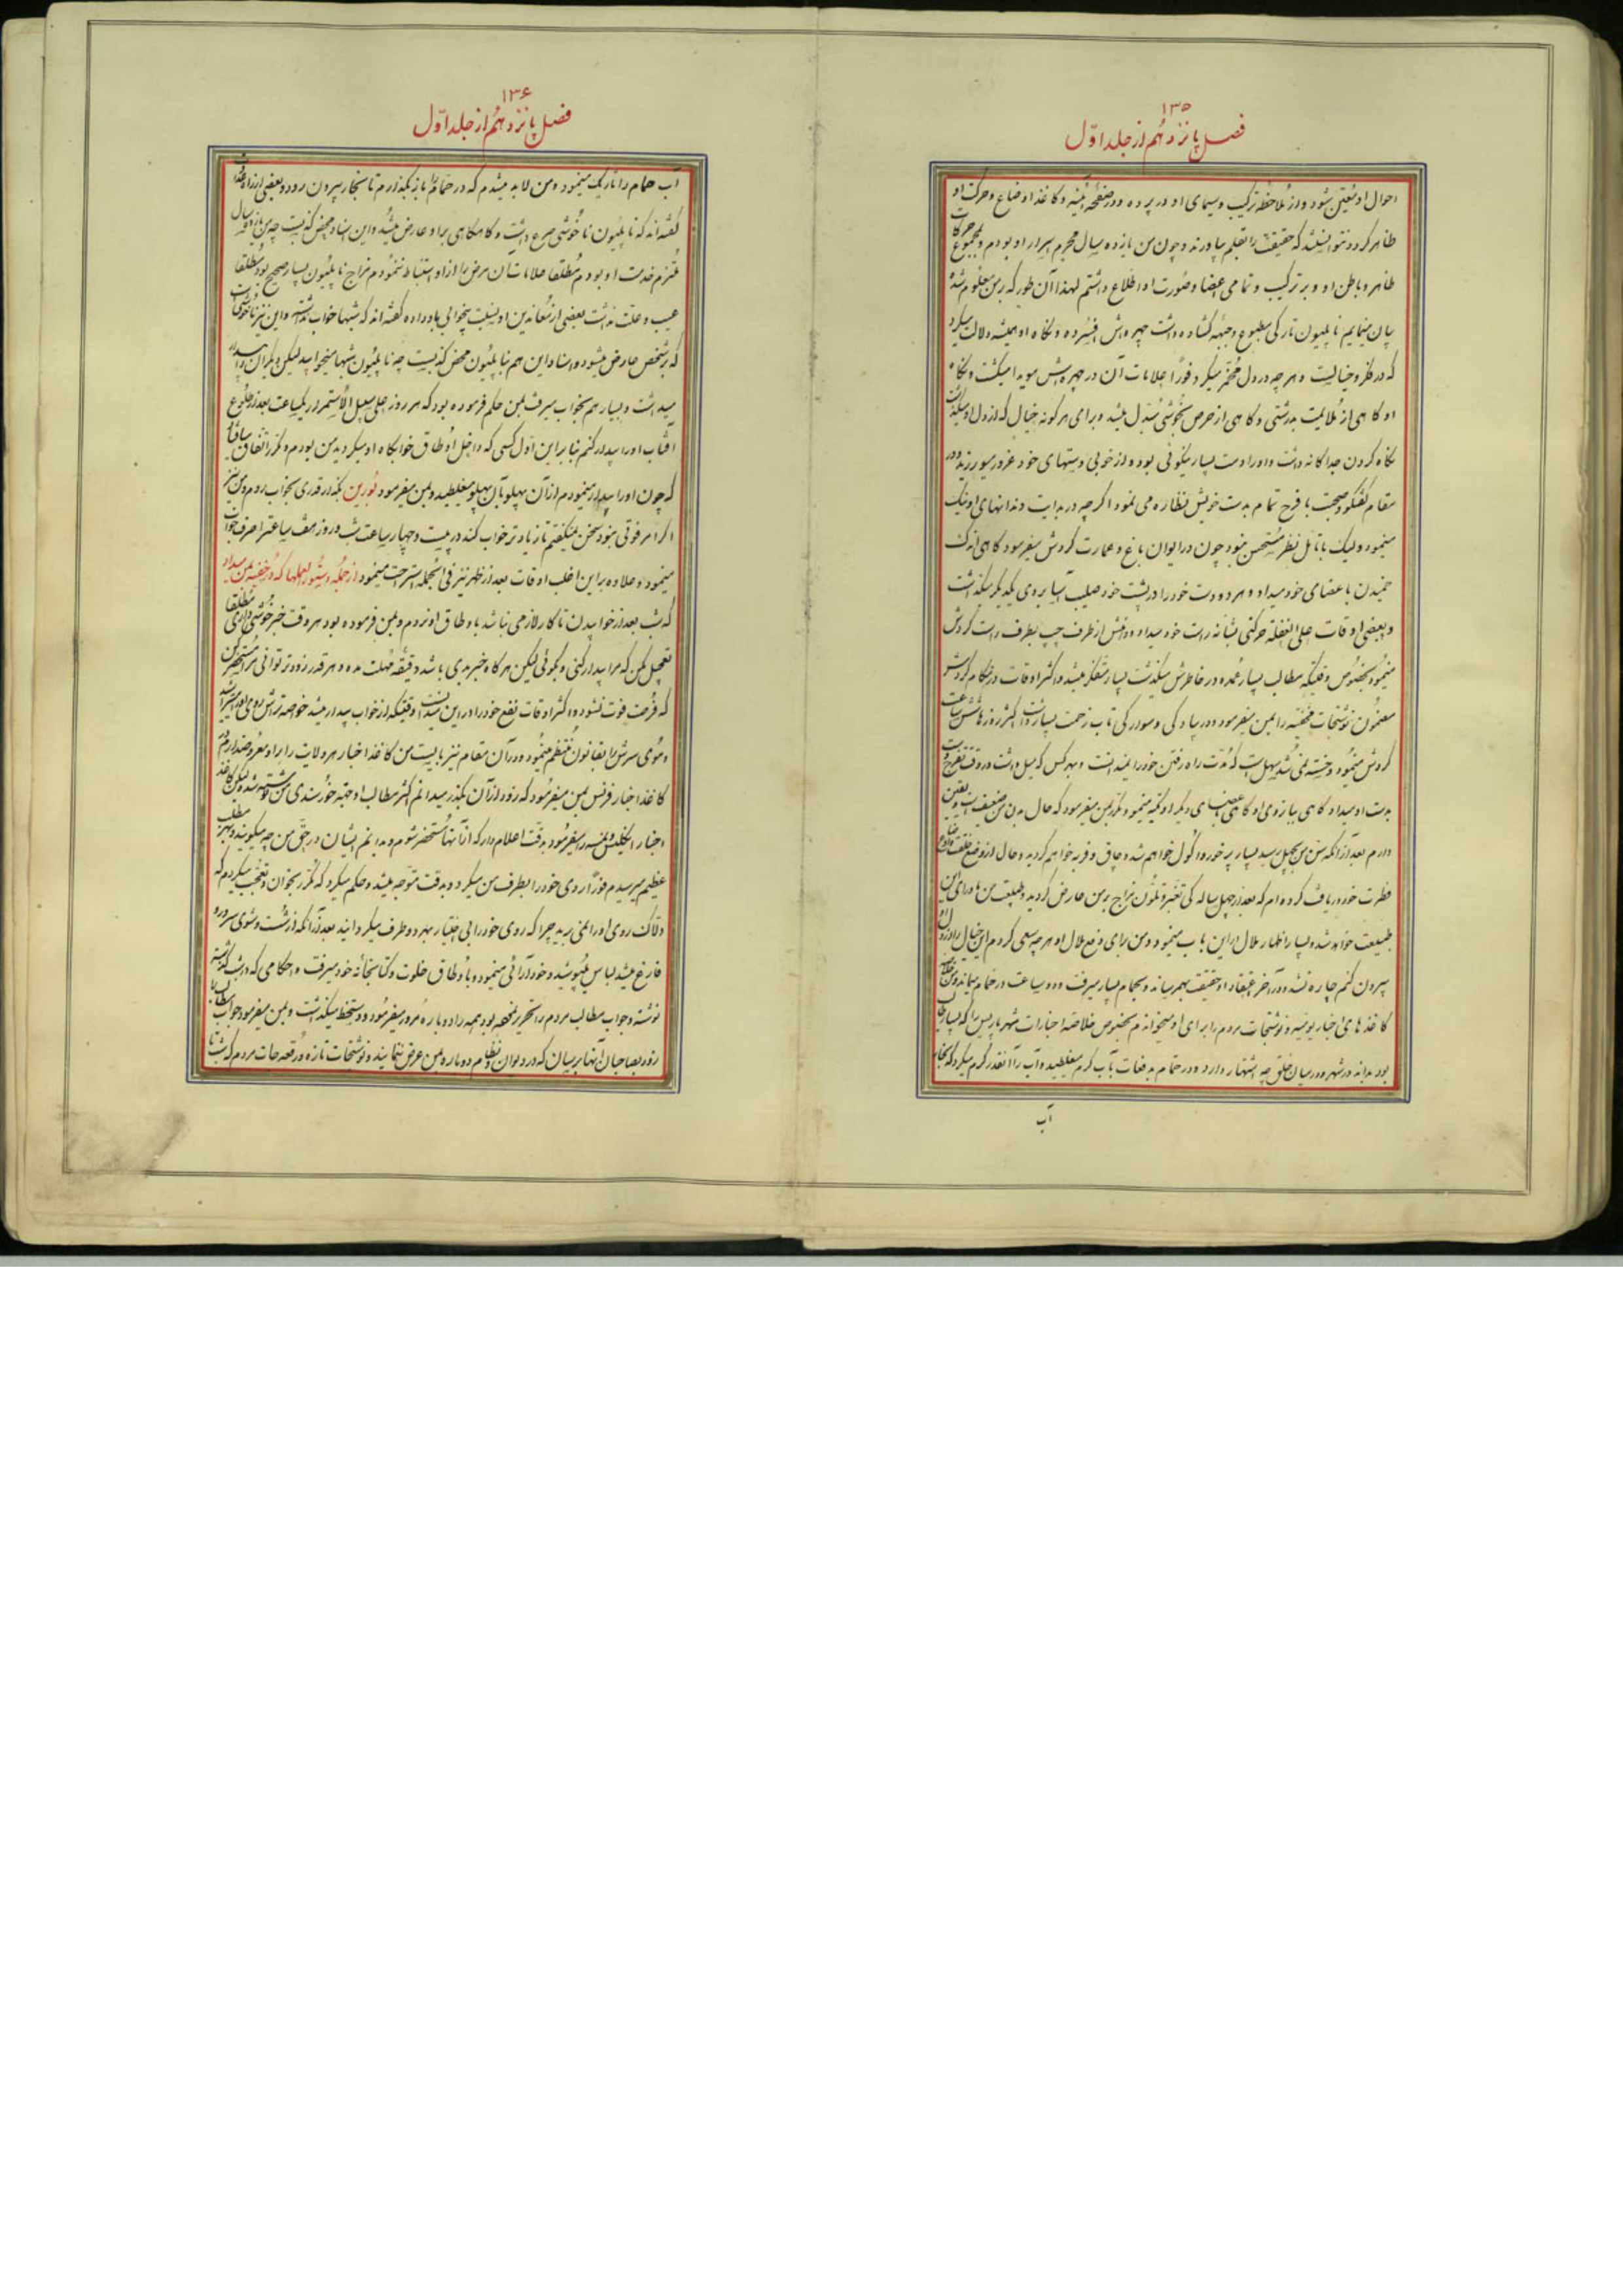 ۱۳۵
فصل پانزدهم از جلد اوّل
احوال او متعین شود و از ملاحظه ترکیب و سیمای او در پرده و در صفحه آینه و کاغذ اوضاع و حرکت او
ظاهر کردد نتوانستند که حقیقت را بقلم بیاورند و چون من یازده سال محرم اسرار او بودم و بمجموع حرکات
ظاهر و باطن او و بر ترکیب و تمامی اعضا و صورت او اطلاع داشتم لهذا آن طور که بر من معلوم شده
بیان مینمایم ناپلیون تارکی مطبوع و جبهه کشاده داشت چهره اش افسرده و نکاه او همیشه دلالت میکرد
که در فکر و خیالیست و هر چه در دل مخمر میکرد فوراً علامات آن در چهره اش هویدا میکشت و نکاه
او کاهی از ملایمت بدرشتی و کاهی از حرص بخوشی مبدل میشد و برای هر کونه خیال که از دل او میکذشت
نکاه کردن جداکانه داشت و او را دست بسیار نیکوئی بود و از خوبی دستهای خود غرور میورزید و در
مقام کفتکو و صحبت با فرح تمام بدست خویش نظاره می نمود اگرچه در بدایت دندانهای او نیک
مینمود ولیک با تأمل بنظر مستحسن نبود چون در ایوان باغ و عمارت کردش میفرمود کاهی اندک
خمیدن باعضای خود میداد و هر دو دست خود را در پشت خود صلیب آسا بروی یکدیکر میکذاشت
و بعضی اوقات علی الغفله حرکتی بشانه راست خود میداد و دهنش از طرف چپ بطرف راست کردش
مینمود بخصوص وقتیکه مطالب بسیار عمده در خاطرش میکذشت بسیار متفکر میشد و اکثر اوقات در هنکام کردش
مضمون نوشتجات مخفیه را بمن میفرمود و در پیادکی و سوارکی تاب زحمت بسیار داشت اکثر روزها شش ساعت
کردش مینمود و خسته نمی شد سهل است که مدت راه رفتن خود را نمیدانست و بهر کس که میل داشت در وقت تفرج دست
بدست او میداد کاهی ببازوی او و کاهی بجای دیکر او تکیه مینمود و مکرر بمن میفرمود که حال بدن من ضعیف است و یقین
دارم بعد از آنکه سن من بچهل برسد بسیار پرخور و اکول خواهم شد و چاق و فربه خواهم کردید و حال از وضع خلقت و ماده
فطرت خود دریافت کرده ام که بعد از چهل سالکی تغیر و تلون مزاج بر من عارض کردید و طبیعت من ماورای این
طبیعت خواهد شد و بسیار اظهار ملال از این باب مینمود و من برای دفع ملال او هر چه سعی کردم این خیال را از دل او
بیرون کنم چاره نشد و در آخر اعتقاد او حقیقت بهم رسانید و بحمام بسیار میرفت و دو ساعت در حمام میماند و من
کاغذهای اخبار یومیه و نوشتجات مردم را برای او میخواندم بخصوص خلاصه اخبارات شهر پاریس را که بسیار طالب
بود بداند در شهر و در میان خلق چه اشتهار دارد و در حمام بدفعات بآب کرم میغلطید و آب را آنقدر کرم میکرد که بخار
آب
۱۳۶
فصل پانزدهم از جلد اوّل
آب حمام را تاریک مینمود و من لابد میشدم که در حمام را باز بکذارم تا بخار بیرون رود و بعضی از
کفته اند که ناپلیون ناخوشی صرع داشت و کاه کاهی بر او عارض میشد و این اسناد محض کذبست چه من یازده سال
ملتزم خدمت او بودم مطلقا علامات آن مرض را از او استنباط ننمودم مزاج ناپلیون بسیار صحیح بود مطلقا
عیب و علت نداشت بعضی از معاندین او نسبت بیخوابی باو داده کفته اند که شبها خواب نداشت و این نیز ناخوشی است
که بر شخص عارض میشود و اسناد این هم بناپلیون محض کذبست چه ناپلیون شبها میخوابید لیکن دیکران را بیدار
میداشت و بسیار هم بخواب میرفت بمن حکم فرموده بود که هر روز علی سبیل الاستمرار یکساعت بعد از طلوع
آفتاب او را بیدار کنم بنابراین اول کسی که داخل اوطاق خوابکاه او میکردید من بودم و مکرر اتفاق میافتاد
که چون او را بیدار مینمودم از آن پهلو بآن پهلو میغلطید و بمن میفرمود بورین بکذار قدری بخواب روم و من نیز
اگر امر فوتی نبود سخن نمیکفتم تا زیادتر خواب کند در بیست و چهار ساعت شب و روز هفت ساعت را صرف خواب
مینمود و علاوه بر این اغلب اوقات بعد از ظهر نیز فی الجمله استراحت مینمود از جمله دستورالعملها که در خفیه بمن میداد
که شب بعد از خوابیدن تا کار لازمی نباشد باوطاق او نروم و بمن فرموده بود هر وقت خبر خوشی داری مطلقا
تعجیل مکن که مرا بیدار کنی و بکوئی لیکن هر کاه خبر بدی باشد دقیقه مهلت مده و هر قدر زودتر توانی مرا مستحضر کن
که فرصت فوت نشود و اکثر اوقات نفع خود را در این میدانست وقتیکه از خواب بیدار میشد خواصه تراش روی او را میتراشید
و موی سرش را بقانون منتظم مینمود و در آن مقام نیز بایست من کاغذ اخبار هر ولایت را براو معروض دارم
کاغذ اخبار فرنس بمن میفرمود که زود از آن بکذر میدانم اکثر مطالب او جهته خورسندی من نوشته شده لیکن کاغذ
اخبار انکلیس و نمسه را میفرمود بدقت اعلام دار که از آنها مستحضر شوم و بدانم ایشان در حق من چه میکویند و بهر مطلب
عظیم میرسیدم فوراً روی خود را بطرف من میکرد و بدقت متوجه میشد و حکم میکرد که مکرر بخوان و تعجب میکردم که
دلاک روی او را نمی برید چرا که روی خود را بی اختیار بهر دو طرف میکردانید بعد از آنکه از شست و شوی سر و رو
فارغ میشد لباس می پوشید و خودآرائی مینمود و باوطاق خلوت و کتابخانه خود میرفت و احکامی که در شب کذشته
نوشته و جواب مطالب مردم را تحریر نموده بود همه را دوباره مرور میفرمود و دستخط میکذاشت و بمن میفرمود جواب مطالب را
زود بصاحبان آنها برسان که در دیوان تظلم دوباره بمن عرض ننمایند و نوشتجات تازه و رقعه جات مردم که شب تا